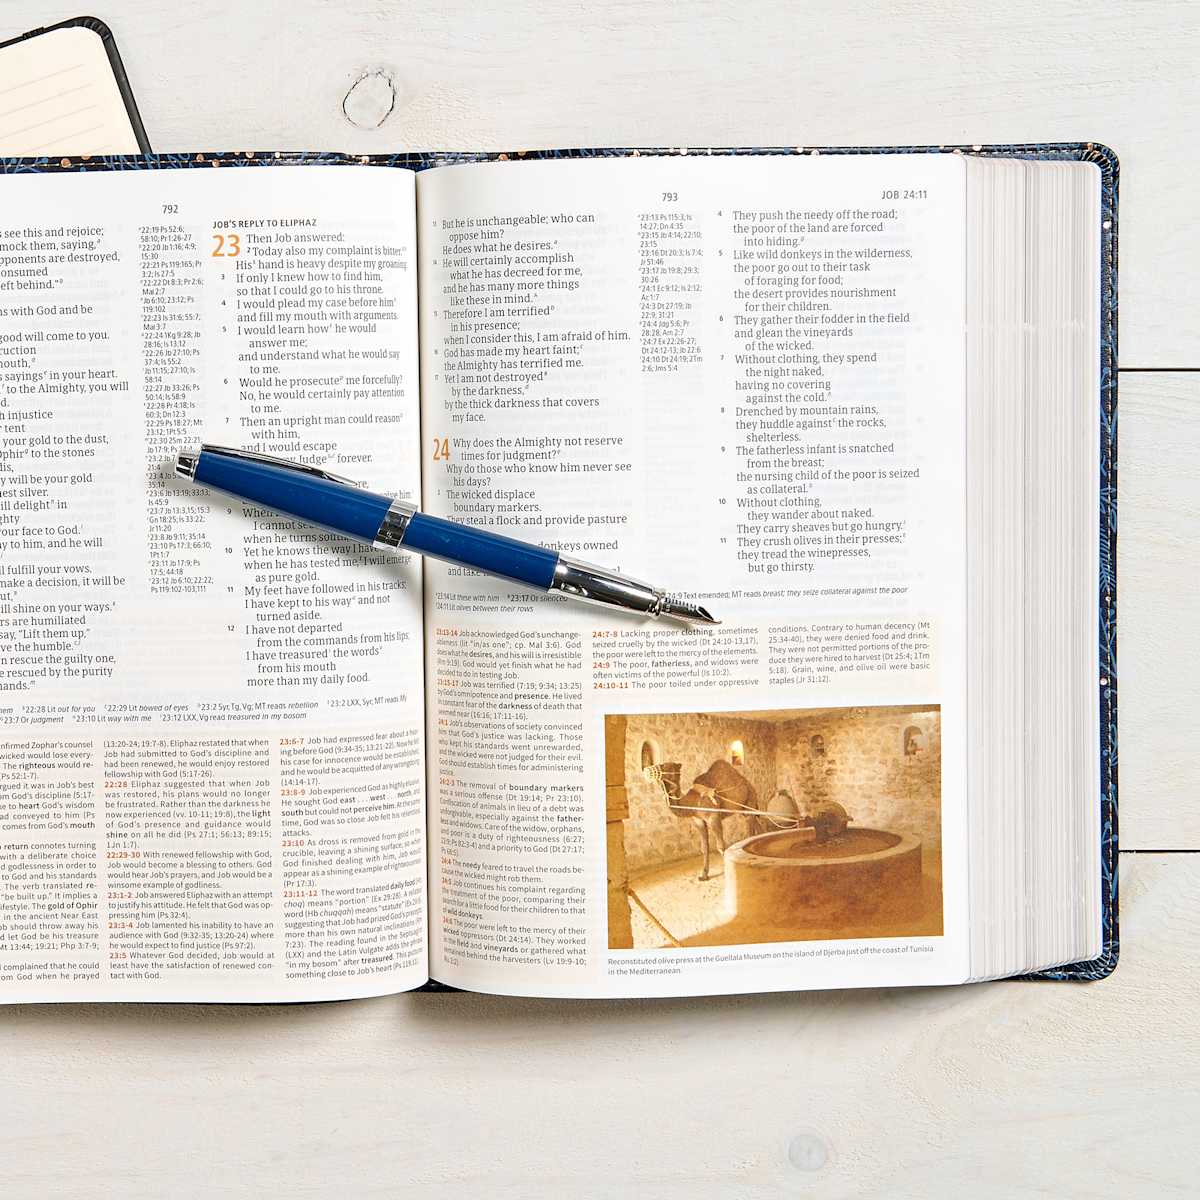 792
s see this and rejoice;
mock them, saying,
pponents are destroyed,
onsumed
eft behind."
ns with God and be
good will come to you.
ruction
mouth,
s sayings in your heart.
to the Almighty, you will
h injustice
r tent
your gold to the dust,
Ophir to the stones
y will be your gold
nest silver.
ill delight" in
ghty
our face to God.
y to him, and he will
l fulfill your vows.
make a decision, it will be
will shine on your ways.
rs are humiliated
say, "Lift them up,"
ve the humble.
n rescue the guilty one,
e rescued by the purity
hands.
22:19 Ps 52:6;
58:10; Pr 1:26-27
22:20 Jb 1:16; 4:9;
15:30
22:21 Ps 119:165; Pr
3:2; Is 27:5
22:22 Dt 8:3; Pr 2:6;
Mal 2:7
Jb 6:10; 23:12; Ps
119:102
22:23 Is 31:6; 55:7;
Mal 3:7
22:24 1Kg 9:28; Jb
28:16; Is 13:12
22:26 Jb 27:10; Ps
37:4; Is 55:2
Jb 11:15; 27:10; Is
58:14
22:27 Jb 33:26; Ps
50:14; Is 58:9
22:28 Pr 4:18; Is
60:3; Dn 12:3
22:29 Ps 18:27; Mt
23:12; 1Pt 5:5
22:30 2Sm 22:21;
JOB'S REPLY TO ELIPHAZ
23 Then Job answered:
2 Today also my complaint is bitter.
His hand is heavy despite my groaning.
3 If only I knew how to find him,
so that I could go to his throne.
4 I would plead my case before him
and fill my mouth with arguments.
5 I would learn how he would
answer me;
and understand what he would say
to me.
6 Would he prosecute me forcefully?
No, he would certainly pay attention
to me.
7 Then an upright man could reason
with him,
and I would escape
my Judge forever.
9 When
I cannot
when he turns
10 Yet he knows the way I have
when he has tested me, I will emerge
as pure gold.
11 My feet have followed in his tracks;
I have kept to his way and not
turned aside.
12 I have not departed
from the commands from his lips;
I have treasured the words
from his mouth
more than my daily food.
22:28 Lit out for you 22:29 Lit bowed of eyes 23:2 Syr, Tg, Vg; MT reads rebellion 23:2 LXX, Syr; MT reads My
23:7 Or judgment 23:10 Lit way with me 23:12 LXX, Vg read treasured in my bosom
nfirmed Zophar's counsel
wicked would lose every-
The righteous would re-
(Ps 52:1-7).
rgued it was in Job's best
om God's discipline (5:17-
e to heart God's wisdom
ad conveyed to him (Ps
comes from God's mouth
o return connotes turning
with a deliberate choice
d godlessness in order to
to God and his standards
The verb translated re-
"be built up." It implies a
ifestyle. The gold of Ophir
in the ancient Near East
ob should throw away his
d let God be his treasure
Mt 13:44; 19:21; Php 3:7-9;
l complained that he could
om God when he prayed
(13:20-24; 19:7-8). Eliphaz restated that when
Job had submitted to God's discipline and
had been renewed, he would enjoy restored
fellowship with God (5:17-26).
22:28 Eliphaz suggested that when Job
was restored, his plans would no longer
be frustrated. Rather than the darkness he
now experienced (vv. 10-11; 19:8), the light
of God's presence and guidance would
shine on all he did (Ps 27:1; 56:13; 89:15;
1Jn 1:7).
22:29-30 With renewed fellowship with God,
Job would become a blessing to others. God
would hear Job's prayers, and Job would be a
winsome example of godliness.
23:1-2 Job answered Eliphaz with an attempt
to justify his attitude. He felt that God was op-
pressing him (Ps 32:4).
23:3-4 Job lamented his inability to have an
audience with God (9:32-35; 13:20-24) where
he would expect to find justice (Ps 97:2).
23:5 Whatever God decided, Job would at
least have the satisfaction of renewed con-
tact with God.
23:6-7 Job had expressed fear about a hear-
ing before God (9:34-35; 13:21-22). Now he felt
his case for innocence would be established,
and he would be acquitted of any wrongdoing
(14:14-17).
23:8-9 Job experienced God as highly elusive.
He sought God east . . . west . . . north, and
south but could not perceive him. At the same
time, God was so close Job felt his relentless
attacks.
23:10 As dross is removed from gold in the
crucible, leaving a shining surface, so when
God finished dealing with him, Job would
appear as a shining example of righteousness
(Pr 17:3).
23:11-12 The word translated daily food (Hb
choq) means "portion" (Ex 29:28). A related
word (Hb chuqqah) means "statute" (Ex 29:9),
suggesting that Job had prized God's precepts
more than his own natural inclinations (Rm
7:23). The reading found in the Septuagint
(LXX) and the Latin Vulgate adds the phrase
"in my bosom" after treasured. This picture is
something close to Job's heart (Ps 119:11).
793
JOB 24:11
13 But he is unchangeable; who can
oppose him?
He does what he desires.
14 He will certainly accomplish
what he has decreed for me,
and he has many more things
like these in mind.
15 Therefore I am terrified
in his presence;
when I consider this, I am afraid of him.
16 God has made my heart faint;
the Almighty has terrified me.
17 Yet I am not destroyed
by the darkness,
by the thick darkness that covers
my face.
24 Why does the Almighty not reserve
times for judgment?
Why do those who know him never see
his days?
2 The wicked displace
boundary markers.
They steal a flock and provide pasture
donkeys owned
and take
23:13 Ps 115:3; Is
14:27; Dn 4:35
23:15 Jb 4:14; 22:10;
23:15
23:16 Dt 20:3; Is 7:4;
Jr 51:46
23:17 Jb 19:8; 29:3;
30:26
24:1 Ec 9:12; Is 2:12;
Ac 1:7
24:3 Dt 27:19; Jb
22:9; 31:21
24:4 Jdg 5:6; Pr
28:28; Am 2:7
24:7 Ex 22:26-27;
Dt 24:12-13; Jb 22:6
24:10 Dt 24:19; 2Tm
2:6; Jms 5:4
4 They push the needy off the road;
the poor of the land are forced
into hiding.
5 Like wild donkeys in the wilderness,
the poor go out to their task
of foraging for food;
the desert provides nourishment
for their children.
6 They gather their fodder in the field
and glean the vineyards
of the wicked.
7 Without clothing, they spend
the night naked,
having no covering
against the cold.
8 Drenched by mountain rains,
they huddle against the rocks,
shelterless.
9 The fatherless infant is snatched
from the breast;
the nursing child of the poor is seized
as collateral.
10 Without clothing,
they wander about naked.
They carry sheaves but go hungry.
11 They crush olives in their presses;
they tread the winepresses,
but go thirsty.
23:14 Lit these with him 23:17 Or silenced 24:9 Text emended; MT reads breast; they seize collateral against the poor
24:11 Lit olives between their rows
23:13-14 Job acknowledged God's unchange-
ableness (lit "in/as one"; cp. Mal 3:6). God
does what he desires, and his will is irresistible
(Rm 9:19). God would yet finish what he had
decided to do in testing Job.
23:15-17 Job was terrified (7:19; 9:34; 13:25)
by God's omnipotence and presence. He lived
in constant fear of the darkness of death that
seemed near (16:16; 17:11-16).
24:1 Job's observations of society convinced
him that God's justice was lacking. Those
who kept his standards went unrewarded,
and the wicked were not judged for their evil.
God should establish times for administering
justice.
24:2-3 The removal of boundary markers
was a serious offense (Dt 19:14; Pr 23:10).
Confiscation of animals in lieu of a debt was
unforgivable, especially against the father-
less and widows. Care of the widow, orphans,
and poor is a duty of righteousness (6:27;
22:9; Ps 82:3-4) and a priority to God (Dt 27:17;
Ps 68:5).
24:4 The needy feared to travel the roads be-
cause the wicked might rob them.
24:5 Job continues his complaint regarding
the treatment of the poor, comparing their
search for a little food for their children to that
of wild donkeys.
24:6 The poor were left to the mercy of their
wicked oppressors (Dt 24:14). They worked
in the field and vineyards or gathered what
remained behind the harvesters (Lv 19:9-10;
24:7-8 Lacking proper clothing, sometimes
seized cruelly by the wicked (Dt 24:10-13,17),
the poor were left to the mercy of the elements.
24:9 The poor, fatherless, and widows were
often victims of the powerful (Is 10:2).
24:10-11 The poor toiled under oppressive
conditions. Contrary to human decency (Mt
25:34-40), they were denied food and drink.
They were not permitted portions of the pro-
duce they were hired to harvest (Dt 25:4; 1Tm
5:18). Grain, wine, and olive oil were basic
staples (Jr 31:12).
Reconstituted olive press at the Guellala Museum on the island of Djerba just off the coast of Tunisia
in the Mediterranean.